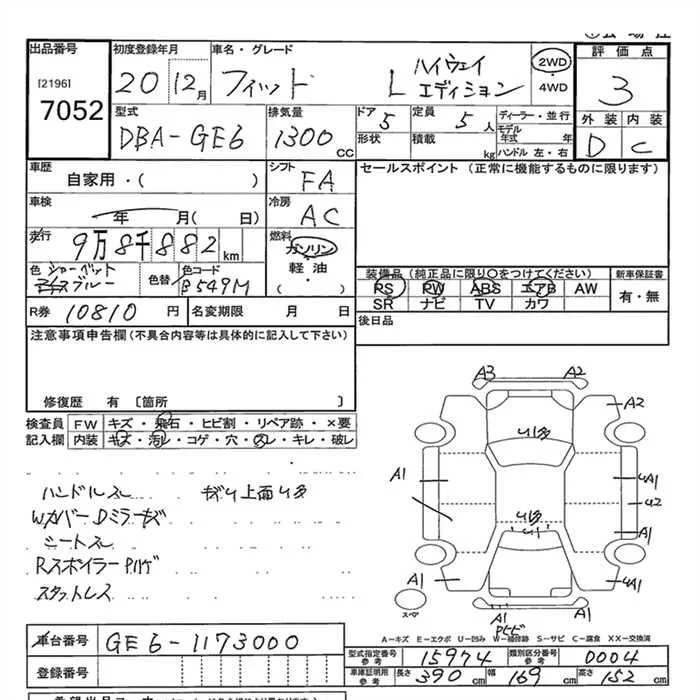 出品番号 初度登録年月 車名・グレード 評価点
[2196] 7052 20 12月 フィット L ハイウェイ エディション 2WD ・ 4WD 3
型式 DBA-GE6 排気量 1300 CC ドア 5 形状 定員 5人 積載 kg ディーラー・並行 モデル年式 年 ハンドル 左・右 外装 D 内装 C
車歴 自家用・( ) シフト FA セールスポイント(正常に機能するものに限ります)
車検 年 月( 日) 冷房 AC
走行 9万8千882 km 燃料 ガソリン・軽油・( )
色 シャーベット ブルー 色替 色コード B549M
装備品(純正品に限り○をつけてください) 新車保証書
PS PW ABS エアB AW 有・無
SR ナビ TV カワ
R券 10810 円 名変期限 月 日 後日品
注意事項申告欄(不具合内容等は具体的に記入して下さい)
修復歴 有 〔箇所 〕
検査員 FW キズ・飛石・ヒビ割・リペア跡・×要
記入欄 内装 キズ・汚レ・コゲ・穴・スレ・キレ・破レ
ハンドルスレ
Wカバー Dミラーキズ
シートスレ
Rスポイラー Pハゲ
スタットレス
A3 A2
A2
A1 A1
U2
A1
A1 A1
A1
スペア
A-キズ E-エクボ U-凹み W-補修跡 S-サビ C-腐食 XX-交換済
車台番号 GE6-1173000
型式指定番号 参考 15974 類別区分番号 参考 0004
登録番号 車庫証明用 参考 長さ 390 cm 幅 169 cm 高さ 152 cm